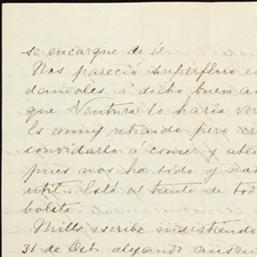 se encargue de él.
Nos pareció superfluo
dándoles á dicho buen
que Ventura lo haría
Es muy retraido pero
convidarlo á comer y
pues nos ha sido y
util. Está al tanto de
bolita.
Mills escribe insistiendo
31 de Oct. alegando